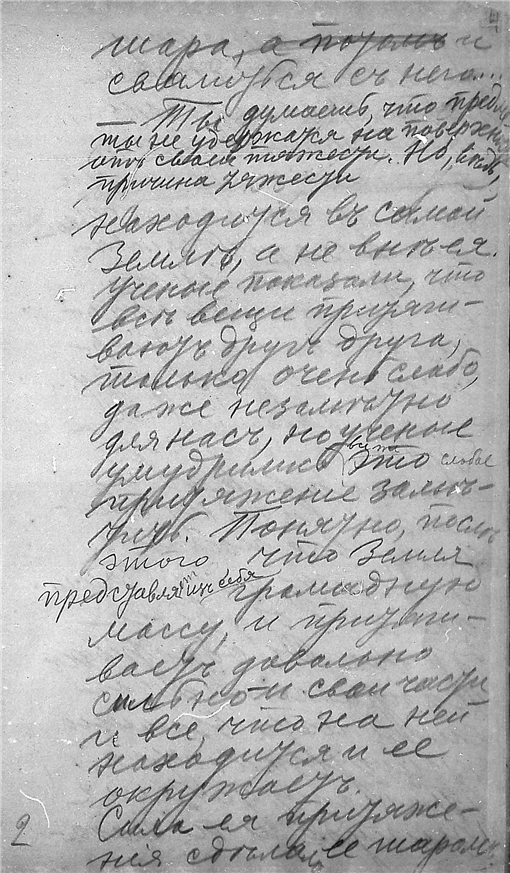 шара, а потомъ и
сваляться съ него...
— Ты думаешь, что предме
ты не удержатся на поверхности
отъ своей тяжести. Но, вѣдь,
причина тяжести
находится въ самой
Землѣ, а не внѣ ея.
Ученые показали, что
всѣ вещи притяги-
ваютъ другъ друга,
только очень слабо,
даже незамѣтно
для насъ, но ученые
умудрились это слабое
притяженіе замѣ-
тить. Понятно, послѣ
этого что Земля
представляетъ изъ себя громадную
массу, и притяги-
ваетъ довольно
сильно и свои части
и все, что на ней
находится и ее
окружаетъ.
Сила ея притяже-
2 нія сдѣлала ее шаромъ